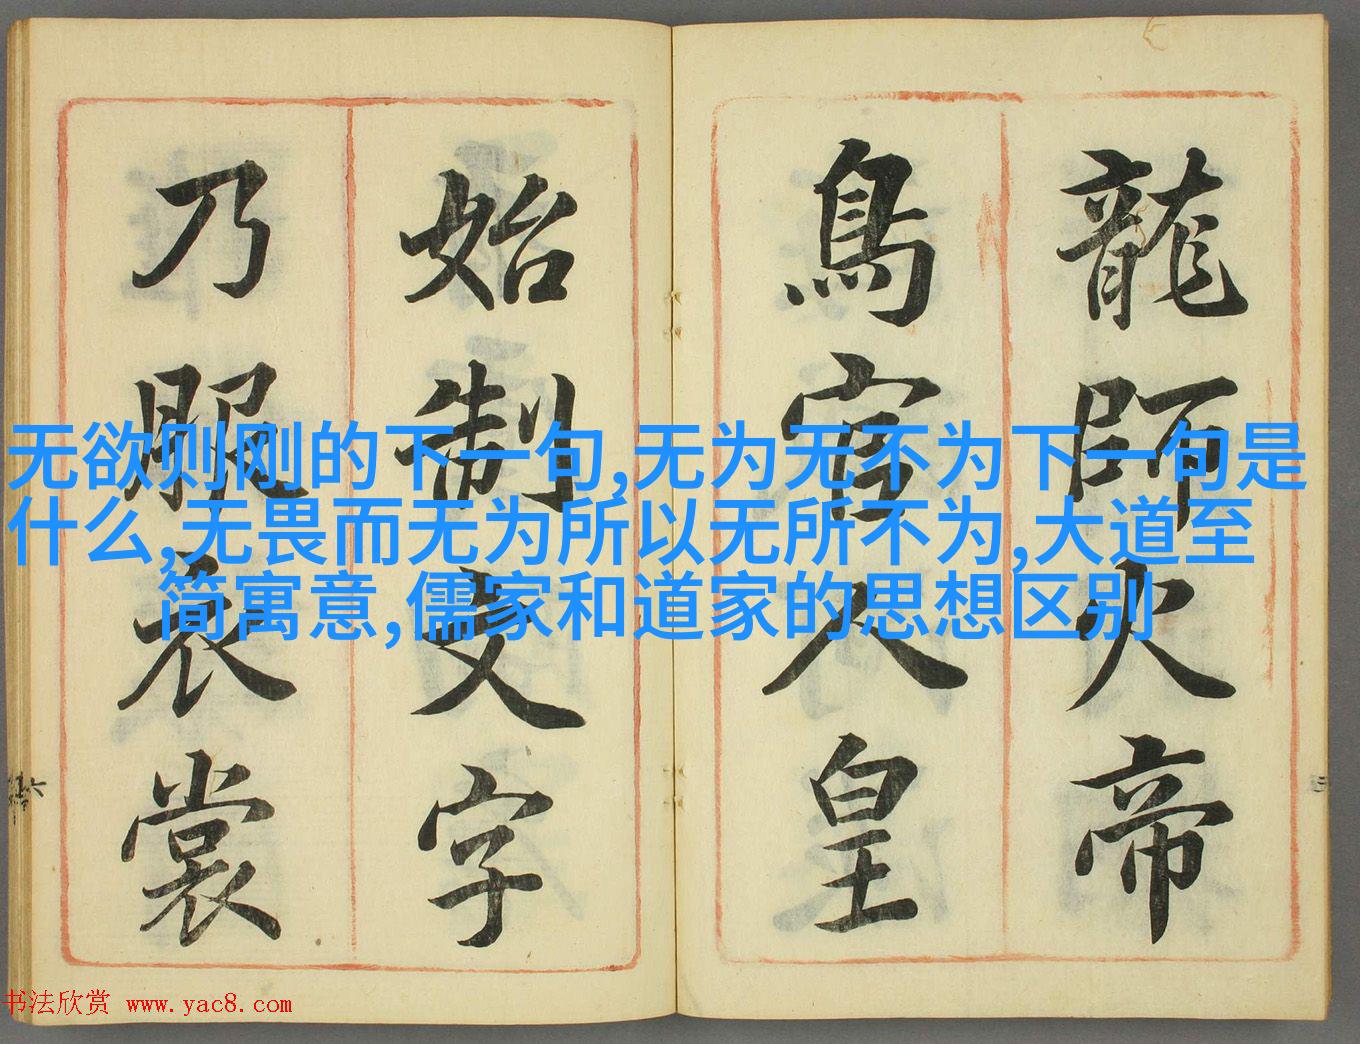 龍師火帝
鳥官人皇
始制文字
乃服衣裳
无欲则刚的下一句,无为无不为下一句是
什么,无畏而无为所以无所不为,大道至
简寓意,儒家和道家的思想区别
书法欣赏 www.yac8.com